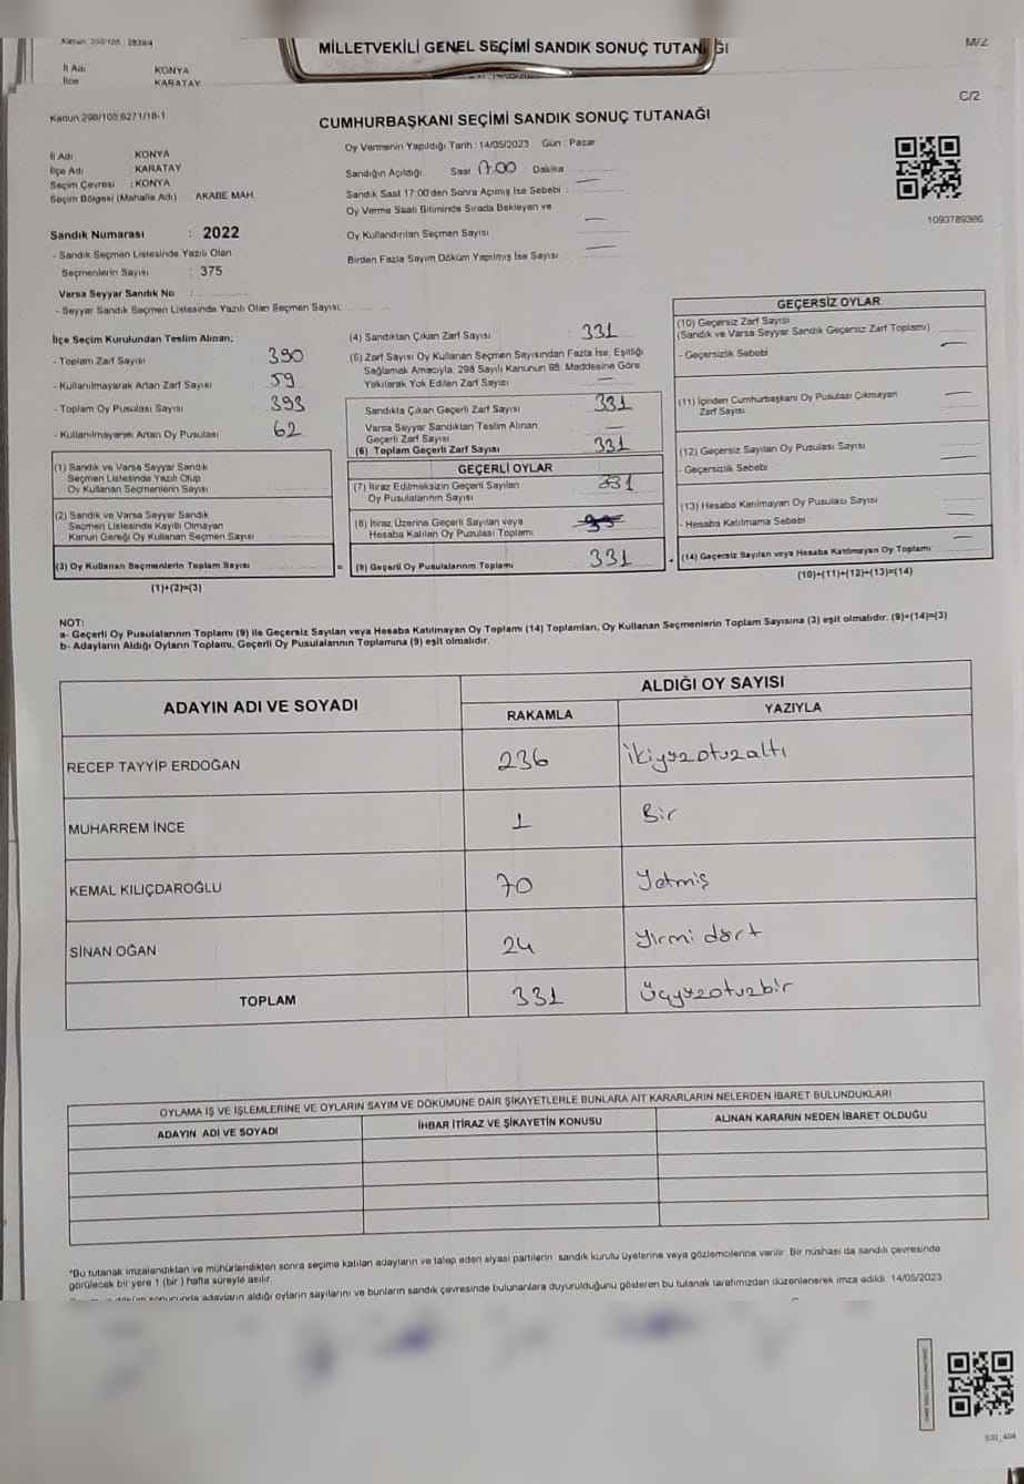 MİLLETVEKİLİ GENEL SEÇİMİ SANDIK SONUÇ TUTANAĞI
M/2
İl Adı KONYA
İlçe KARATAY
C/2
Kanun 298/108;6271/18-1
CUMHURBAŞKANI SEÇİMİ SANDIK SONUÇ TUTANAĞI
Oy Vermenin Yapıldığı Tarih : 14/05/2023 Gün : Pazar
İl Adı KONYA
İlçe Adı KARATAY
Seçim Çevresi : KONYA
Seçim Bölgesi (Mahalle Adı) AKABE MAH.
Sandığın Açıldığı Saat 17.00 Dakika
Sandık Saat 17:00'den Sonra Açılmış İse Sebebi :
Oy Verme Saati Bitiminde Sırada Bekleyen ve
Oy Kullandırılan Seçmen Sayısı —
Birden Fazla Sayım Döküm Yapılmış İse Sayısı —
1093789386
Sandık Numarası : 2022
- Sandık Seçmen Listesinde Yazılı Olan
Seçmenlerin Sayısı : 375
Varsa Seyyar Sandık No :
- Seyyar Sandık Seçmen Listesinde Yazılı Olan Seçmen Sayısı:
İlçe Seçim Kurulundan Teslim Alınan;
- Toplam Zarf Sayısı 390
- Kullanılmayarak Artan Zarf Sayısı 59
- Toplam Oy Pusulası Sayısı 393
- Kullanılmayarak Artan Oy Pusulası 62
(1) Sandık ve Varsa Seyyar Sandık
Seçmen Listesinde Yazılı Olup
Oy Kullanan Seçmenlerin Sayısı
(2) Sandık ve Varsa Seyyar Sandık
Seçmen Listesinde Kayıtlı Olmayan
Kanun Gereği Oy Kullanan Seçmen Sayısı
(3) Oy Kullanan Seçmenlerin Toplam Sayısı
(1)+(2)=(3)
(4) Sandıktan Çıkan Zarf Sayısı 331
(5) Zarf Sayısı Oy Kullanan Seçmen Sayısından Fazla İse, Eşitliği
Sağlamak Amacıyla, 298 Sayılı Kanunun 98. Maddesine Göre
Yakılarak Yok Edilen Zarf Sayısı —
Sandıkta Çıkan Geçerli Zarf Sayısı 331
Varsa Seyyar Sandıktan Teslim Alınan
Geçerli Zarf Sayısı —
(6) Toplam Geçerli Zarf Sayısı 331
GEÇERLİ OYLAR
(7) İtiraz Edilmeksizin Geçerli Sayılan
Oy Pusulalarının Sayısı 331
(8) İtiraz Üzerine Geçerli Sayılan veya
Hesaba Katılan Oy Pusulası Toplamı
= (9) Geçerli Oy Pusulalarının Toplamı 331
GEÇERSİZ OYLAR
(10) Geçersiz Zarf Sayısı
(Sandık ve Varsa Seyyar Sandık Geçersiz Zarf Toplamı)
- Geçersizlik Sebebi
(11) İçinden Cumhurbaşkanı Oy Pusulası Çıkmayan
Zarf Sayısı
(12) Geçersiz Sayılan Oy Pusulası Sayısı
- Geçersizlik Sebebi
(13) Hesaba Katılmayan Oy Pusulası Sayısı
- Hesaba Katılmama Sebebi
+ (14) Geçersiz Sayılan veya Hesaba Katılmayan Oy Toplamı
(10)+(11)+(12)+(13)=(14)
NOT:
a- Geçerli Oy Pusulalarının Toplamı (9) ile Geçersiz Sayılan veya Hesaba Katılmayan Oy Toplamı (14) Toplamları, Oy Kullanan Seçmenlerin Toplam Sayısına (3) eşit olmalıdır. (9)+(14)=(3)
b- Adayların Aldığı Oyların Toplamı, Geçerli Oy Pusulalarının Toplamına (9) eşit olmalıdır.
ADAYIN ADI VE SOYADI
ALDIĞI OY SAYISI
RAKAMLA YAZIYLA
RECEP TAYYİP ERDOĞAN 236 ikiyüzotuzaltı
MUHARREM İNCE 1 Bir
KEMAL KILIÇDAROĞLU 70 Yetmiş
SİNAN OĞAN 24 Yirmi dört
TOPLAM 331 Üçyüzotuzbir
OYLAMA İŞ VE İŞLEMLERİNE VE OYLARIN SAYIM VE DÖKÜMÜNE DAİR ŞİKAYETLERLE BUNLARA AİT KARARLARIN NELERDEN İBARET BULUNDUKLARI
ADAYIN ADI VE SOYADI İHBAR İTİRAZ VE ŞİKAYETİN KONUSU ALINAN KARARIN NEDEN İBARET OLDUĞU
*Bu tutanak imzalandıktan ve mühürlendikten sonra seçime katılan adayların ve talep eden siyasi partilerin sandık kurulu üyelerine veya gözlemcilerine verilir. Bir nüshası da sandık çevresinde
görülecek bir yere 1 (bir) hafta süreyle asılır.
döküm sonucunda adayların aldığı oyların sayılarını ve bunların sandık çevresinde bulunanlara duyurulduğunu gösteren bu tutanak tarafımızdan düzenlenerek imza edildi. 14/05/2023